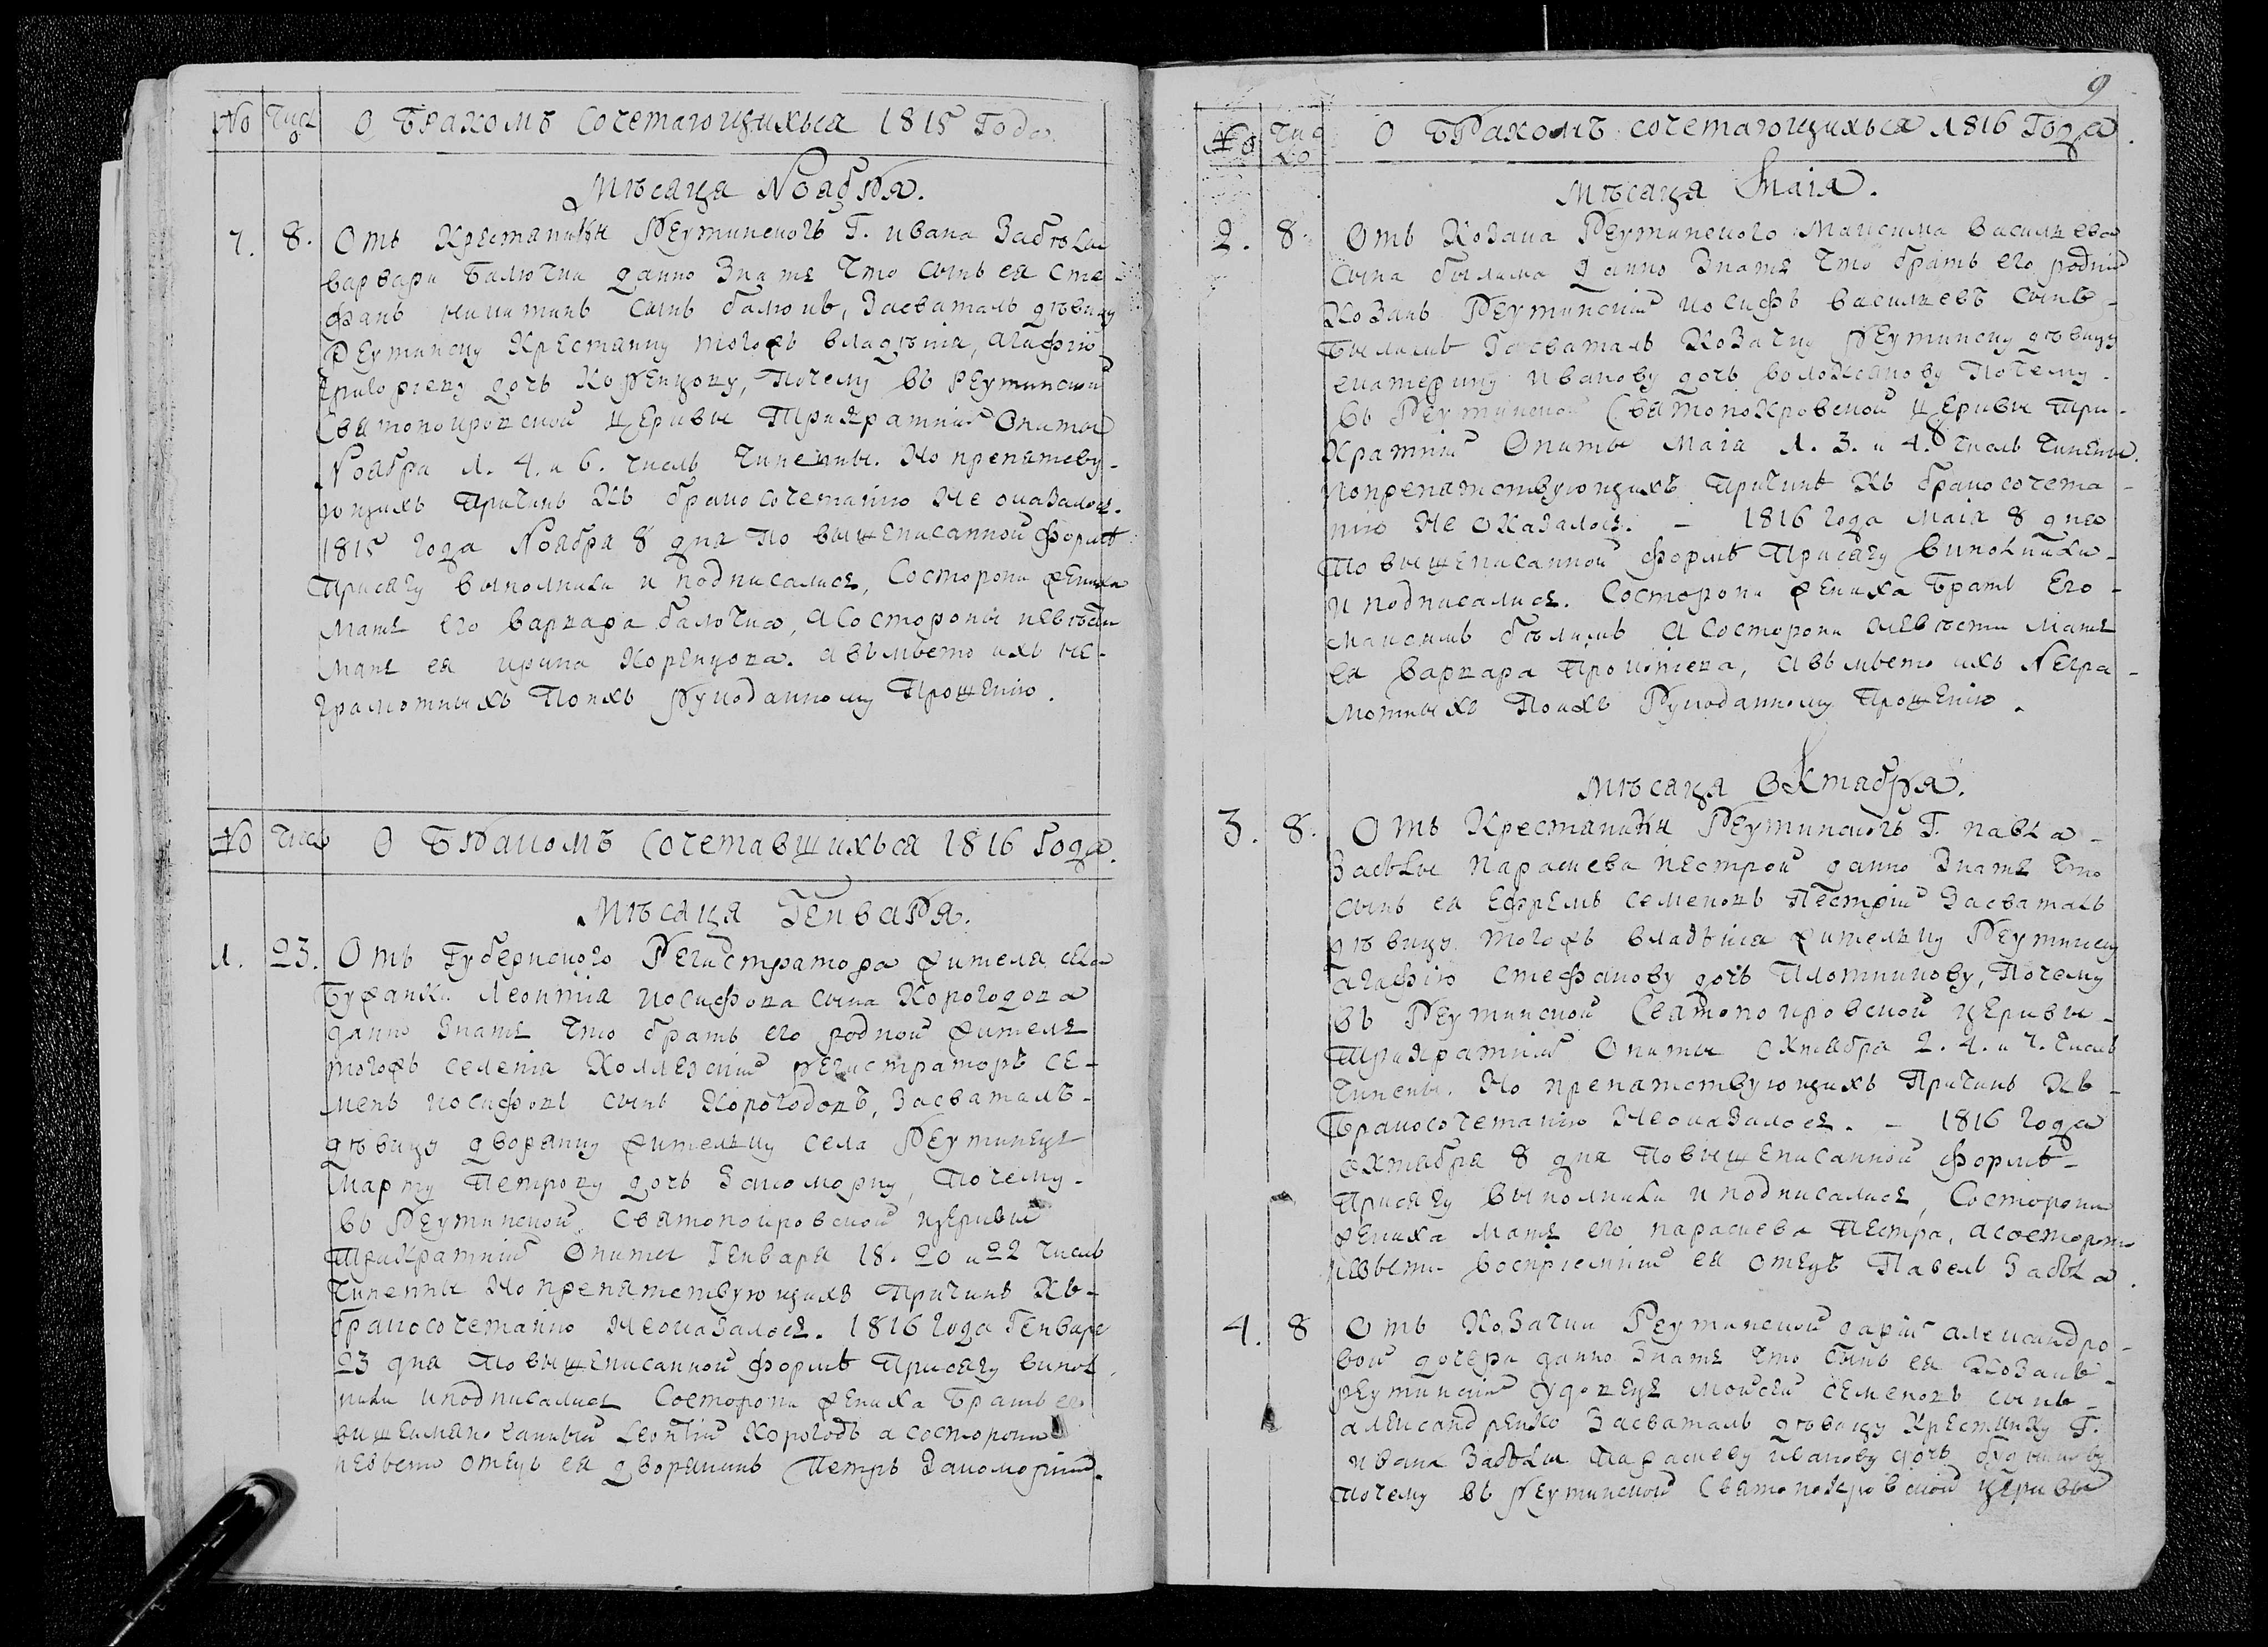 No Число О Бракомъ сочетающихься 1815 Года
Мѣсяца Ноября.
7. 8. Отъ Крестянкы Реутинскогъ Г. ивана Забѣлы
варвары Балючки данно Знать что сынъ ея Сте-
фанъ никитинъ сынъ балюкъ, Засваталъ дѣвицу
Реутинску Крестянку тогожъ владѣнiя, агафiю
григорiеву дочь Коренцову, Почему въ Реутинской
Святопокровской Церквы Трикратнiи Опиты
Ноября 1. 4. и 6. числъ чиненны. Но препятству-
ющихъ Причинъ Къ бракосочетанiю Не оказалось.
1815 года Ноября 8 дня По вышеписанной формѣ
Присягу выполнили и подписались, Состороны жениха
Мать его варвара балючка, а Состороны невѣсты
мать ея ирина Коренцова. а вьмѣсто ихъ не-
грамотныхъ Поихъ рукоданному Прошенiю.
No Число О Бракомъ Сочетавшихься 1816 Года.
Мѣсяца Генваря.
1. 23. Отъ Губернского Регистратора жителя села
Бужанки Леонтiя иосифова сына Хороходова
данно Знать что братъ его родной житель
тогожъ селенiя Коллежскiй регистраторъ Се-
менъ иосифовъ сынъ Хороходовъ, Засваталъ
дѣвицу дворянку жителку села Реутинецъ
Марту Петрову дочь Закоморну, Почему-
въ Реутинской Святопокровской церквы
Трикратнiи Опиты Генваря 18. 20 и 22 числъ
Чиненны Но препятствующихъ Причинъ Къ-
бракосочетанiю Неоказалось. 1816 года Генваря
23 дня По вышеписанной формѣ Присягу випол-
нили и подписались Состороны жениха Братъ его
вишеимяночанный Леонтiй Хороходъ а состороны
невѣсты отецъ ея дворянинъ Петръ Закоморный.
9
No Число О Бракомъ сочетающихься 1816 Года.
Мѣсяца Маiя.
2. 8. Отъ Козака Реутинского Максима василева
сына былима данно Знать что братъ его родный
Козакъ Реутинскiй иосифъ василевъ сынъ-
Былимъ Засваталъ Козачку Реутинску дѣвицу
екатерину иванову дочь Почему-
въ Реутинской Святопокровской Церквы Три-
Кратнiи Опиты Маiя 1. 3. и 4. числъ чинены.
Но препятствующихъ Причинъ Къ бракосочета-
нiю Не оказалось. - 1816 года Маiя 8 дня
По вышеписанной формѣ Присягу виполнили-
и подписались. Состороны жениха Братъ Его-
Максимъ былимъ а Состороны невѣсты Мать
ея варвара Прокопiева, а вьмѣсто ихъ Негра-
мотныхъ Поихъ Рукоданному Прошенiю.
Мѣсяца Октября.
3. 8. Отъ Крестянки Реутинскогъ Г. павла-
Забѣлы Параскева пестрой данно Знать что
сынъ ея Ефремъ семеновъ Пестрiй Засваталъ
дѣвицу тогожъ владѣнiя жителку Реутинску
агафiю стефанову дочь Плотникову, Почему
въ Реутинской Святопокровской церквы-
Трикратнiи Опиты Октября 2. 4. и 7. числъ
Чинены. Но препятствующихъ Причинъ Къ-
Бракосочетанiю Неоказалось. - 1816 года
Октября 8 дня Повышеписанной формѣ-
Присягу выполнили и подписались, Состороны
жениха Мать его параскева Пестра, а состороны
невѣсты воспрiемнiй ея отецъ Павелъ Забѣла.
4. 8 Отъ Козачки Реутинской дарiи александро-
вой дочери данно Знать что сынъ ея Козакъ-
реутинскiй удовецъ Мойсей Семеновъ сынъ-
александренко Засваталъ дѣвицу Крестянку Г.
ивана Забѣлы Параскеву иванову дочь
Почему въ Реутинской Святопокровской Церквы